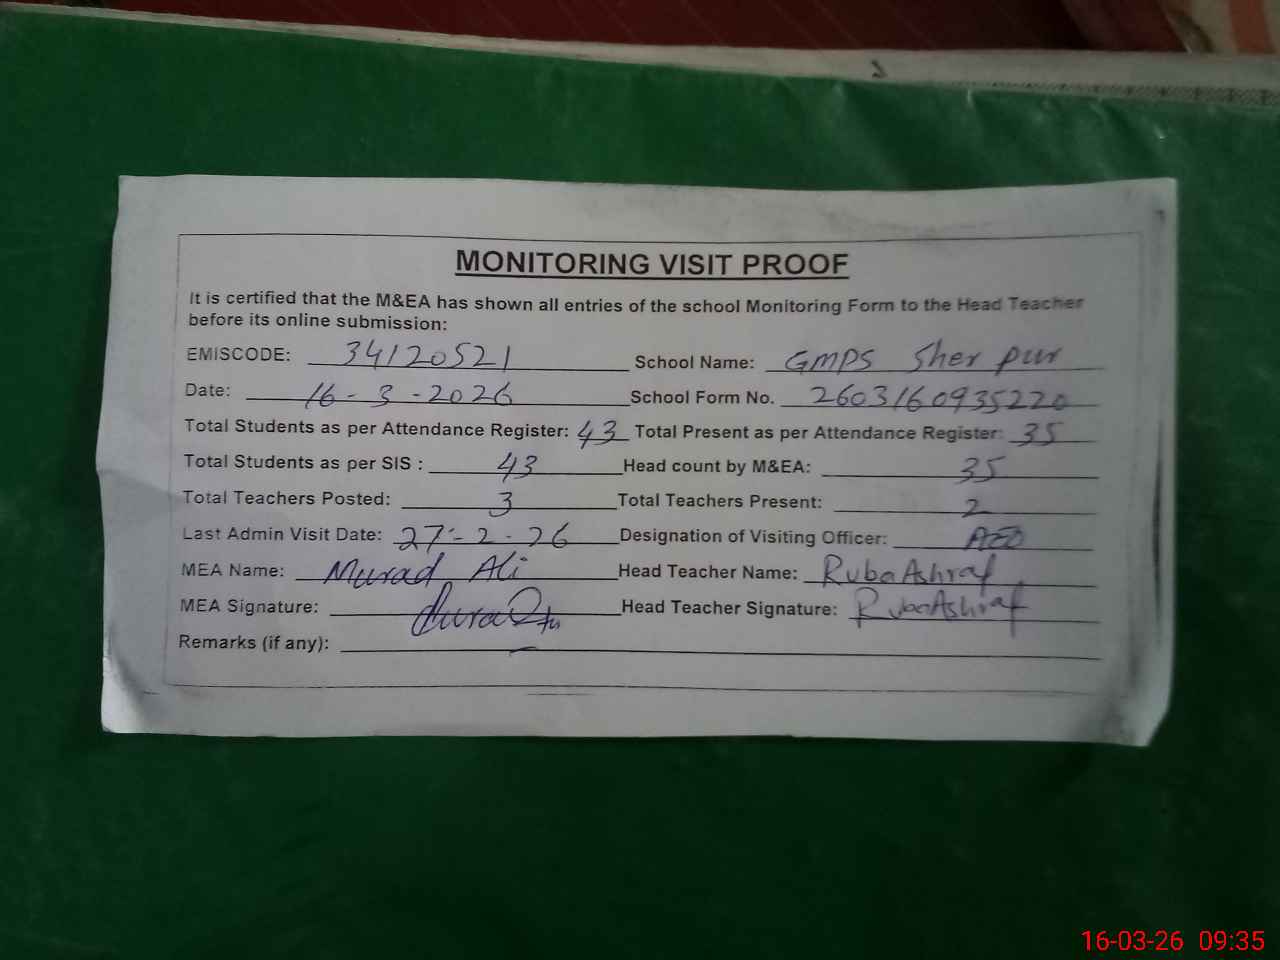 MONITORING VISIT PROOF
It is certified that the M&EA has shown all entries of the school Monitoring Form to the Head Teacher
before its online submission:
EMISCODE: 34120521 School Name: GMPS Sher pur
Date: 16-3-2026 School Form No. 2603160935220
Total Students as per Attendance Register: 43 Total Present as per Attendance Register: 35
Total Students as per SIS : 43 Head count by M&EA: 35
Total Teachers Posted: 3 Total Teachers Present: 2
Last Admin Visit Date: 27-2-26 Designation of Visiting Officer: AEO
MEA Name: Murad Ali Head Teacher Name: Ruba Ashraf
MEA Signature: Head Teacher Signature: Ruba Ashraf
Remarks (if any):
16-03-26 09:35